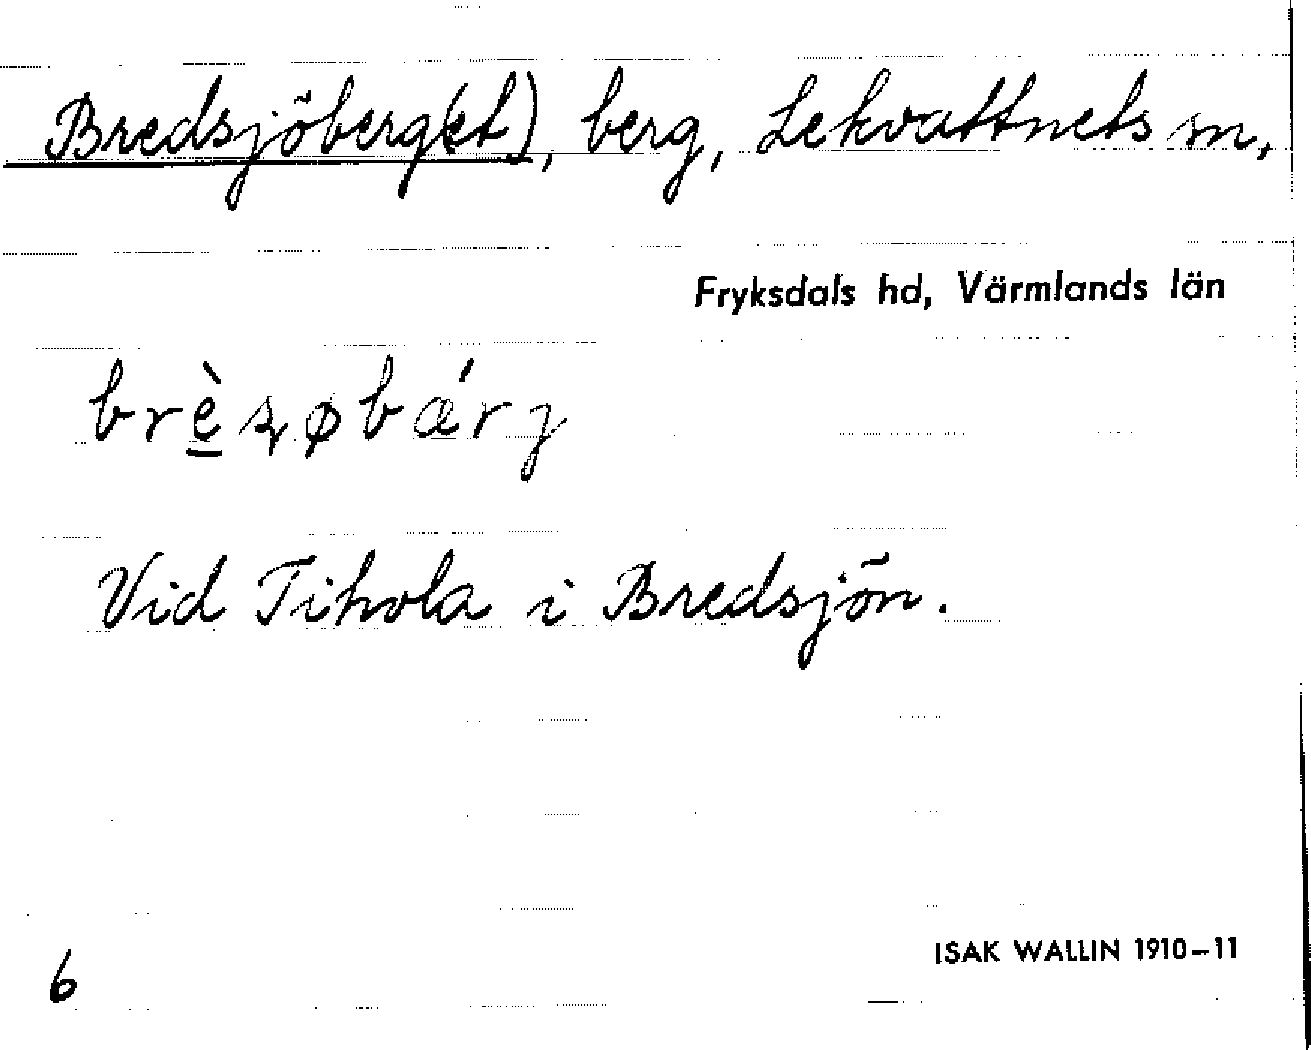 Bredsjöberg(et), berg, Lekvattnets sn,
Fryksdals hd, Värmlands län
Vid Tihola i Bredsjön.
6
ISAK WALLIN 1910–11